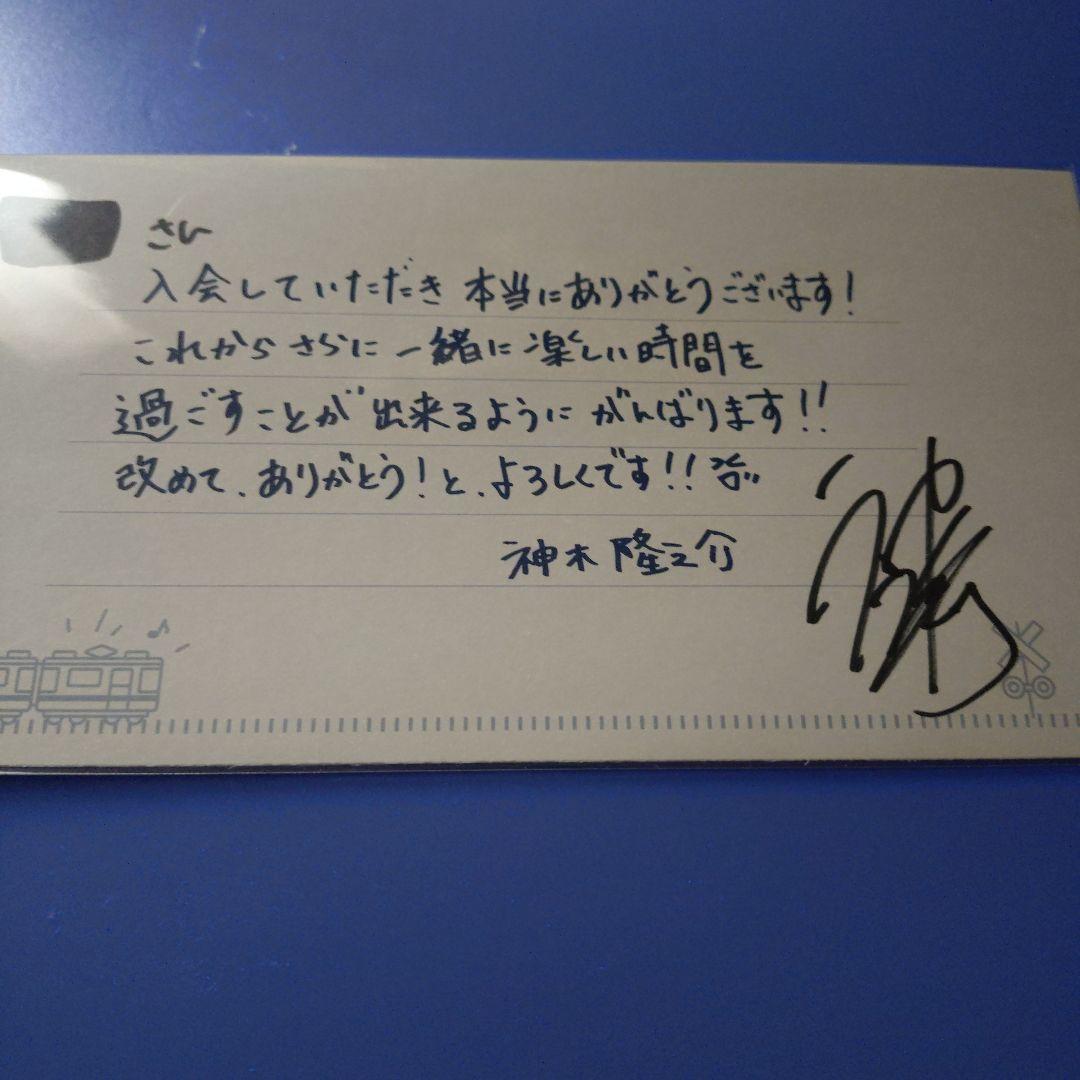 さん
入会していただき本当にありがとうございます!
これからさらに一緒に楽しい時間を
過ごすことが出来るようにがんばります!!
改めて、ありがとう!と、よろしくです!!
神木隆之介